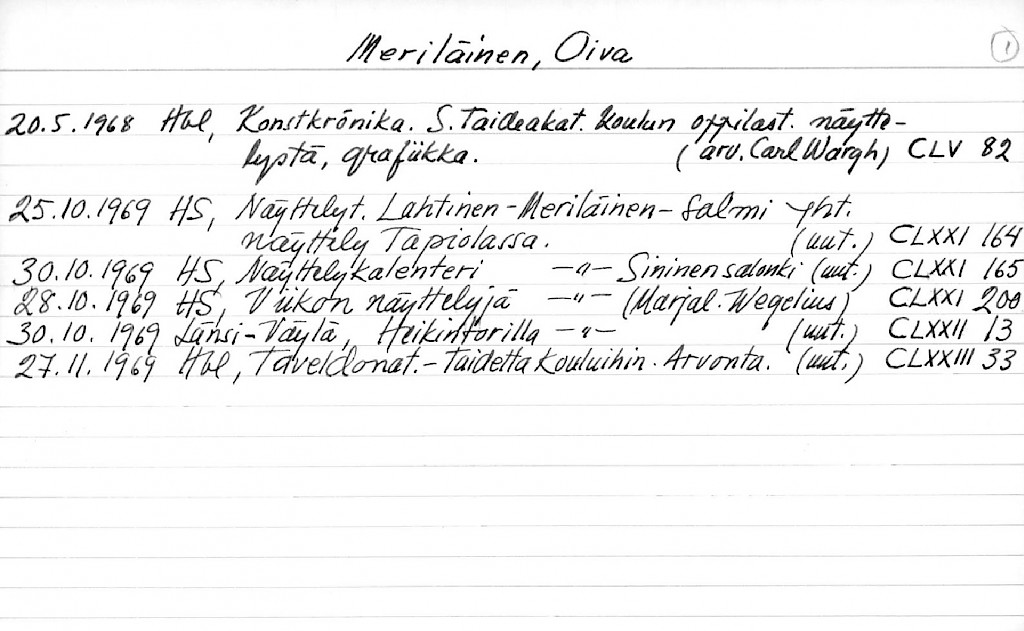 Meriläinen, Oiva
1
20.5.1968 Hbl, Konstkrönika. S. Taideakat. koulun oppilast. näytte-
lystä, grafiikka. (arv. Carl Wargh) CLV 82
25.10.1969 HS, Näyttelyt. Lahtinen-Meriläinen-Salmi yht.
näyttely Tapiolassa. (uut.) CLXXI 164
30.10.1969 HS, Näyttelykalenteri —"— Sininen salonki (uut.) CLXXI 165
28.10.1969 HS, Viikon näyttelyjä —"— (Marjal. Wegelius) CLXXI 200
30.10.1969 Länsi-Väylä, Heikintorilla —"— (uut.) CLXXII 13
27.11.1969 Hbl, Taveldonat.- taidetta kouluihin. Arvonta. (uut.) CLXXIII 33